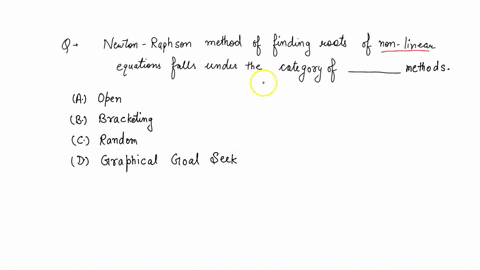 Q→ Newton-Raphson method of finding roots of non-linear
equations falls under the category of ________ methods.
(A.) Open
(B.) Bracketing
(C.) Random
(D) Graphical Goal Seek